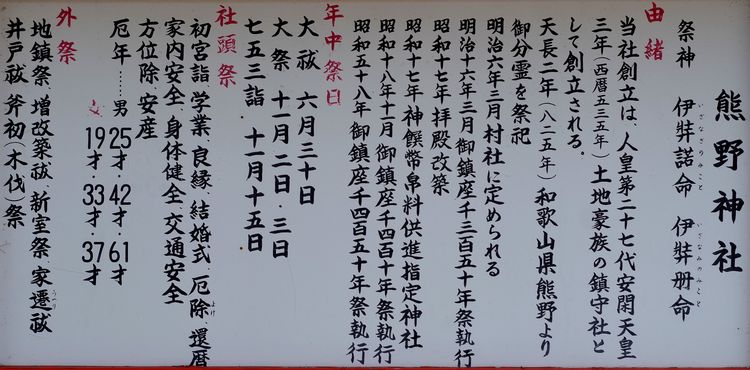 熊野神社
祭神　伊弉諾命　伊弉冊命
いざなぎのみこと　いざなみのみこと
由緒
当社創立は、人皇第二十七代安閑天皇
三年(西暦五三五年)土地豪族の鎮守社と
して創立される。
天長二年(八二五年)和歌山県熊野より
御分霊を祭祀
明治六年三月村社に定められる
明治十六年三月御鎮座千三百五十年祭執行
昭和十七年拝殿改築
昭和十七年神饌幣帛料供進指定神社
昭和十八年十一月御鎮座千四百十年祭執行
昭和五十八年御鎮座千四百五十年祭執行
年中祭日
大祓　六月三十日
大祭　十一月二日・三日
七五三詣　十一月十五日
社頭祭
初宮詣　学業　良縁　結婚式　厄除　還暦
よけ
家内安全　身体健全　交通安全
方位除　安産
厄年……男25才・42才・61才
女19才・33才・37才
外祭
地鎮祭、増改築祓、新室祭、家遷祓
うつり
井戸祓　斧初(木伐)祭